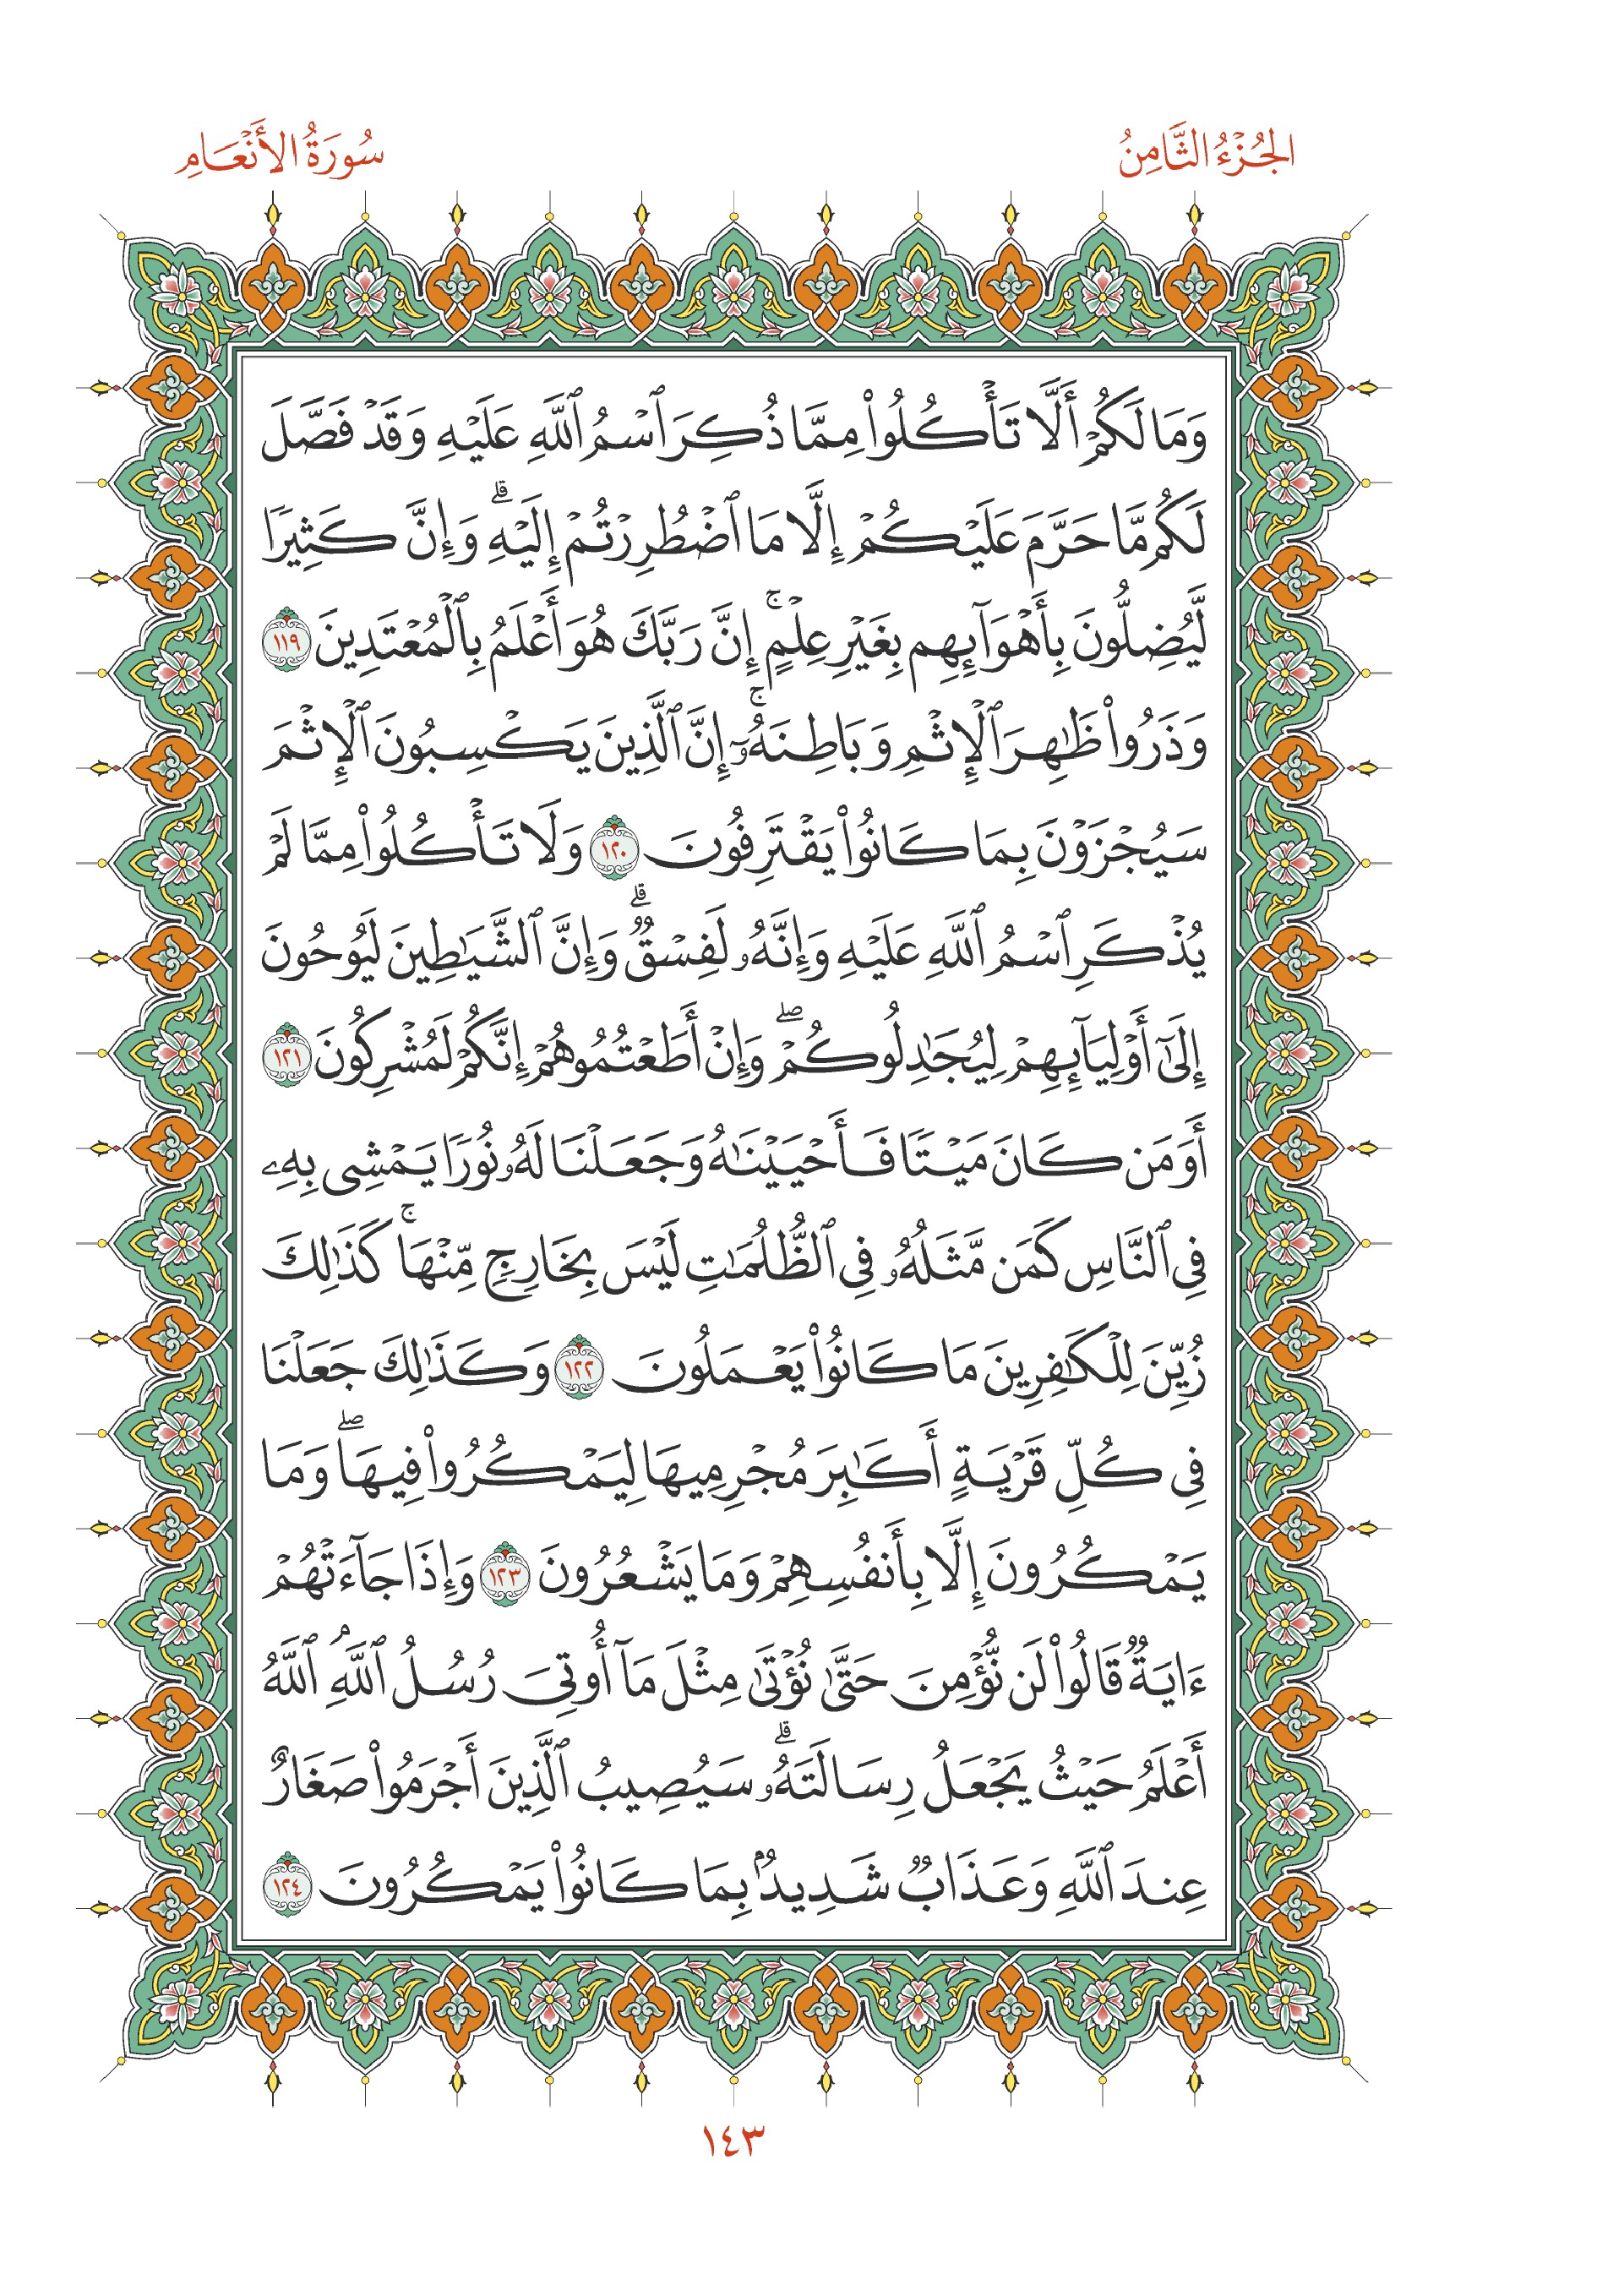 الجُزْءُ الثَّامِنُ
سُورَةُ الأَنْعَامِ
وَمَا لَكُمْ أَلَّا تَأْكُلُوا۟ مِمَّا ذُكِرَ ٱسْمُ ٱللَّهِ عَلَيْهِ وَقَدْ فَصَّلَ
لَكُم مَّا حَرَّمَ عَلَيْكُمْ إِلَّا مَا ٱضْطُرِرْتُمْ إِلَيْهِ ۗ وَإِنَّ كَثِيرًا
لَّيُضِلُّونَ بِأَهْوَآئِهِم بِغَيْرِ عِلْمٍ ۚ إِنَّ رَبَّكَ هُوَ أَعْلَمُ بِٱلْمُعْتَدِينَ ١١٩
وَذَرُوا۟ ظَـٰهِرَ ٱلْإِثْمِ وَبَاطِنَهُۥٓ ۚ إِنَّ ٱلَّذِينَ يَكْسِبُونَ ٱلْإِثْمَ
سَيُجْزَوْنَ بِمَا كَانُوا۟ يَقْتَرِفُونَ ١٢٠ وَلَا تَأْكُلُوا۟ مِمَّا لَمْ
يُذْكَرِ ٱسْمُ ٱللَّهِ عَلَيْهِ وَإِنَّهُۥ لَفِسْقٌ ۗ وَإِنَّ ٱلشَّيَـٰطِينَ لَيُوحُونَ
إِلَىٰٓ أَوْلِيَآئِهِمْ لِيُجَـٰدِلُوكُمْ ۖ وَإِنْ أَطَعْتُمُوهُمْ إِنَّكُمْ لَمُشْرِكُونَ ١٢١
أَوَمَن كَانَ مَيْتًا فَأَحْيَيْنَـٰهُ وَجَعَلْنَا لَهُۥ نُورًا يَمْشِى بِهِۦ
فِى ٱلنَّاسِ كَمَن مَّثَلُهُۥ فِى ٱلظُّلُمَـٰتِ لَيْسَ بِخَارِجٍ مِّنْهَا ۚ كَذَٰلِكَ
زُيِّنَ لِلْكَـٰفِرِينَ مَا كَانُوا۟ يَعْمَلُونَ ١٢٢ وَكَذَٰلِكَ جَعَلْنَا
فِى كُلِّ قَرْيَةٍ أَكَـٰبِرَ مُجْرِمِيهَا لِيَمْكُرُوا۟ فِيهَا ۖ وَمَا
يَمْكُرُونَ إِلَّا بِأَنفُسِهِمْ وَمَا يَشْعُرُونَ ١٢٣ وَإِذَا جَآءَتْهُمْ
ءَايَةٌ قَالُوا۟ لَن نُّؤْمِنَ حَتَّىٰ نُؤْتَىٰ مِثْلَ مَآ أُوتِىَ رُسُلُ ٱللَّهِ ۘ ٱللَّهُ
أَعْلَمُ حَيْثُ يَجْعَلُ رِسَالَتَهُۥ ۗ سَيُصِيبُ ٱلَّذِينَ أَجْرَمُوا۟ صَغَارٌ
عِندَ ٱللَّهِ وَعَذَابٌ شَدِيدٌۢ بِمَا كَانُوا۟ يَمْكُرُونَ ١٢٤
١٤٣